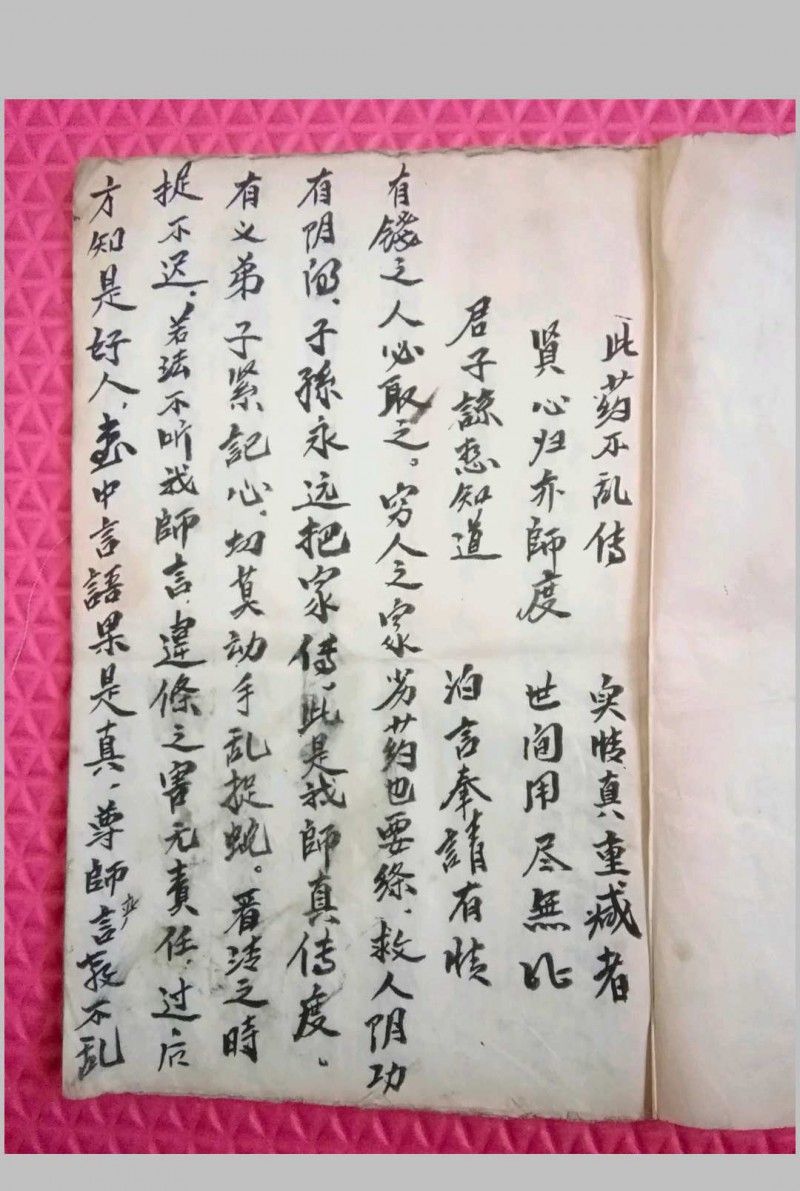 此药不乱传 实情真重减者
贤心归亦師度 世间用尽無比
君子諒愁知道 泊言奉請有情
有錢之人必取之。穷人之家劣药也要给、救人阴功
有阴、子孫永远把家传、此是我師真传度。
有义弟子紧記心、切莫动手乱捉蛇。看清之時
捉不迟、若法不听我師言、違條之害元責任、过后
方知是好人、書中言語果是真、尊師言教不乱